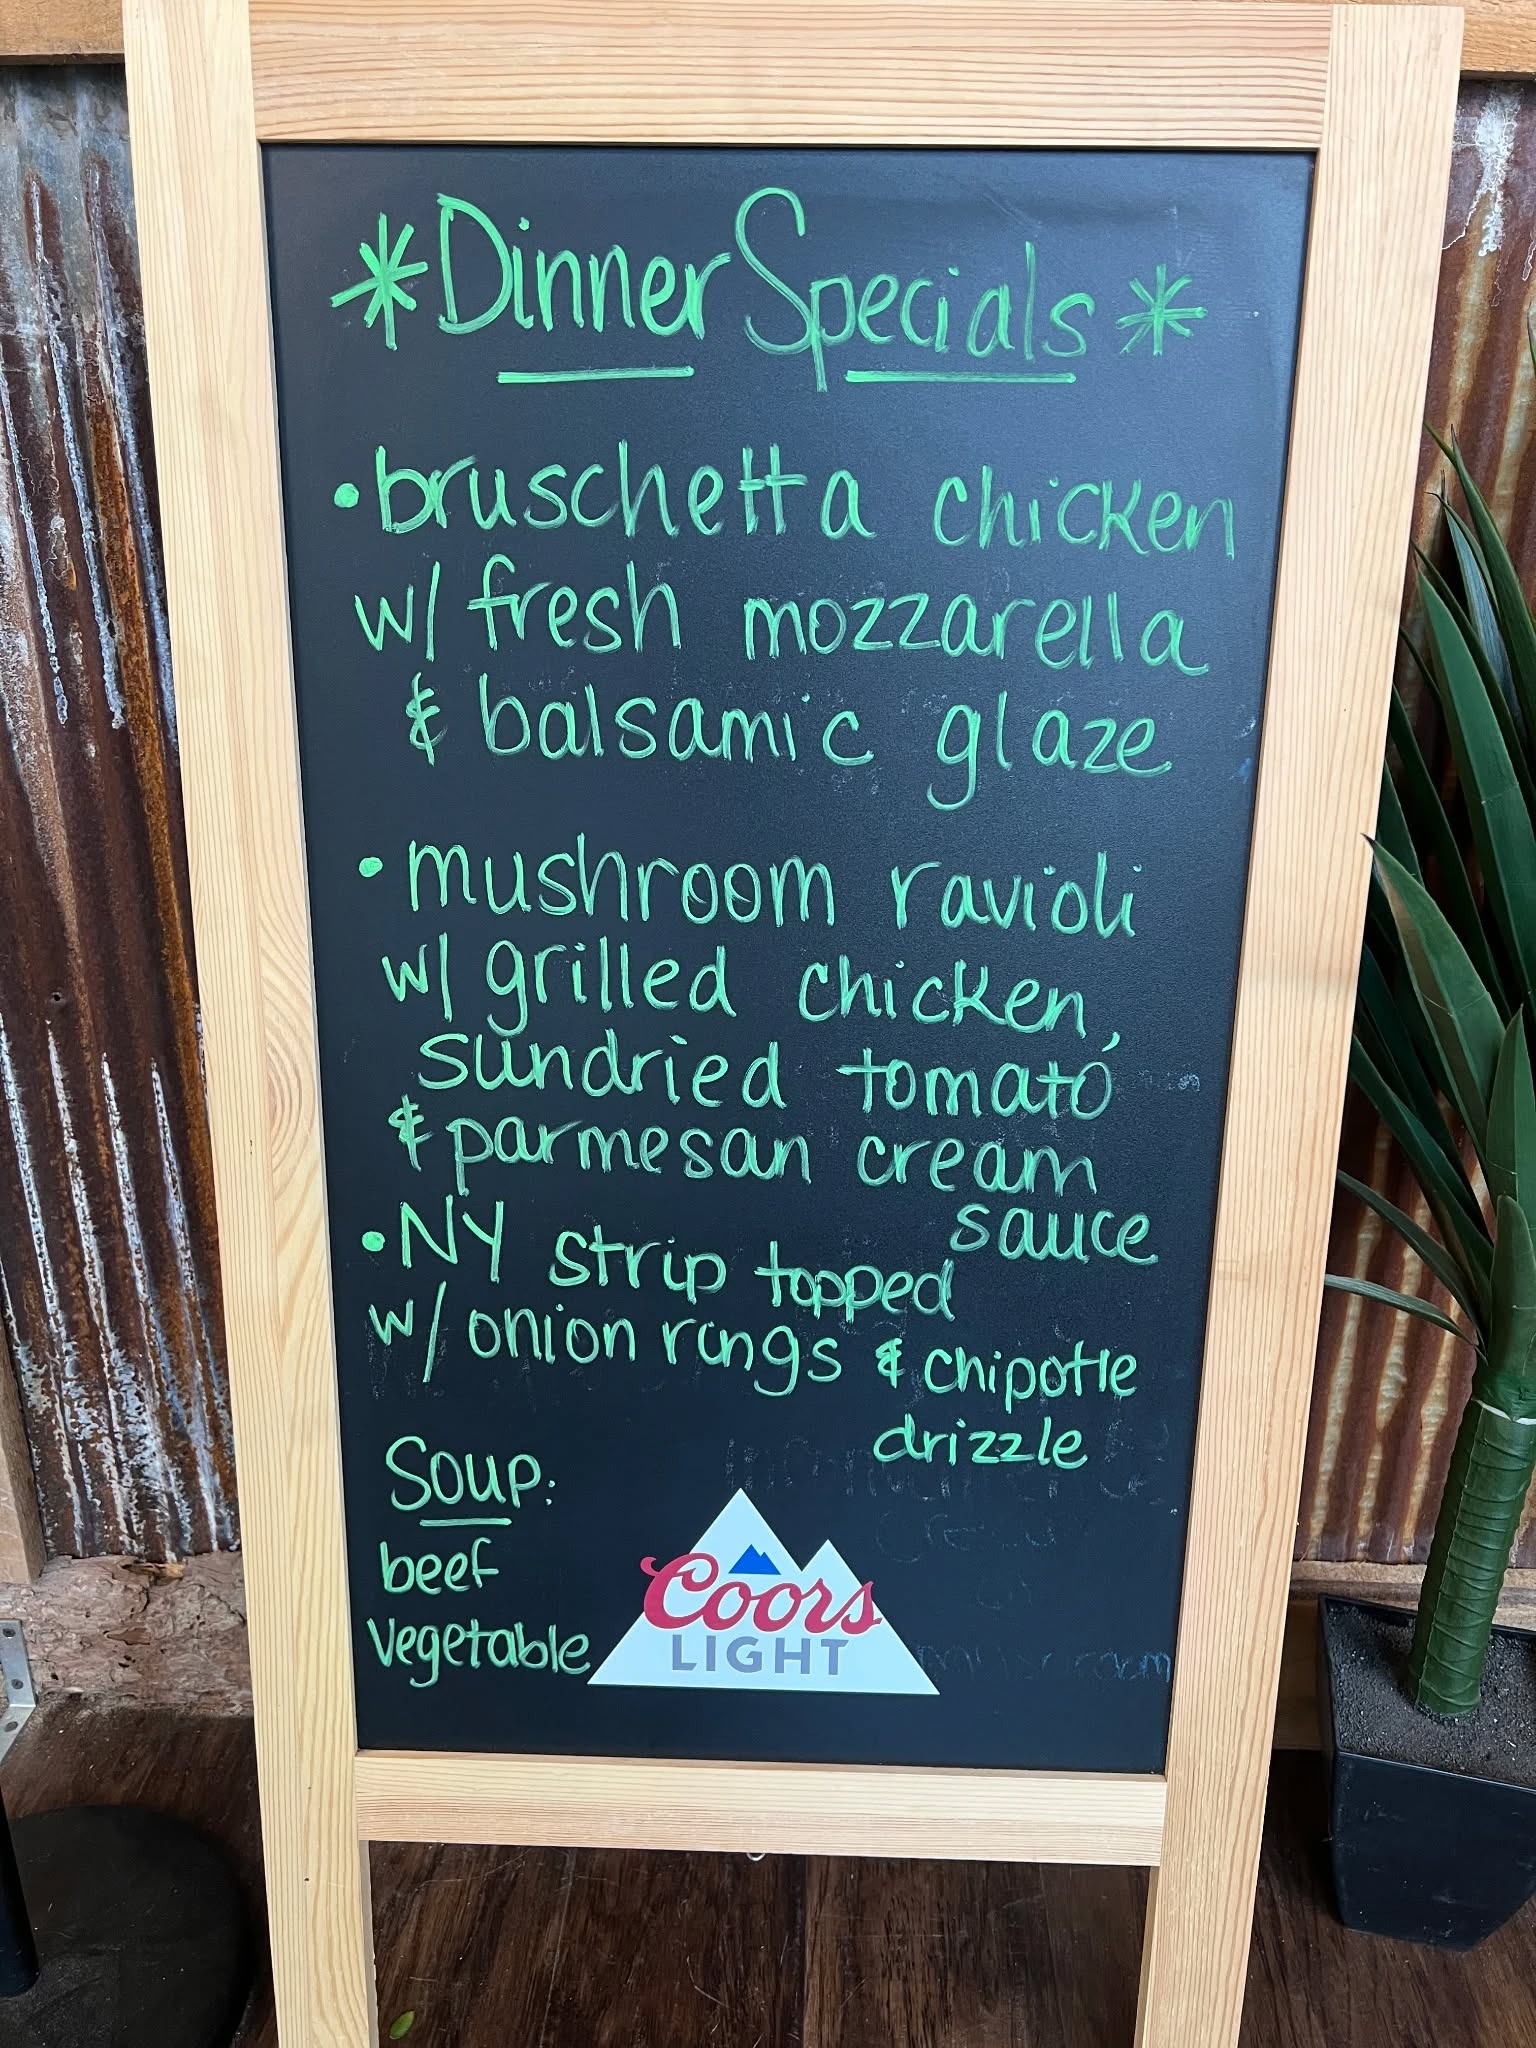 *Dinner Specials*
•bruschetta chicken
w/ fresh mozzarella
& balsamic glaze
•mushroom ravioli
w/ grilled chicken,
sundried tomato
& parmesan cream
sauce
•NY strip topped
w/ onion rings & chipotle
drizzle
Soup:
beef
vegetable
Coors
LIGHT